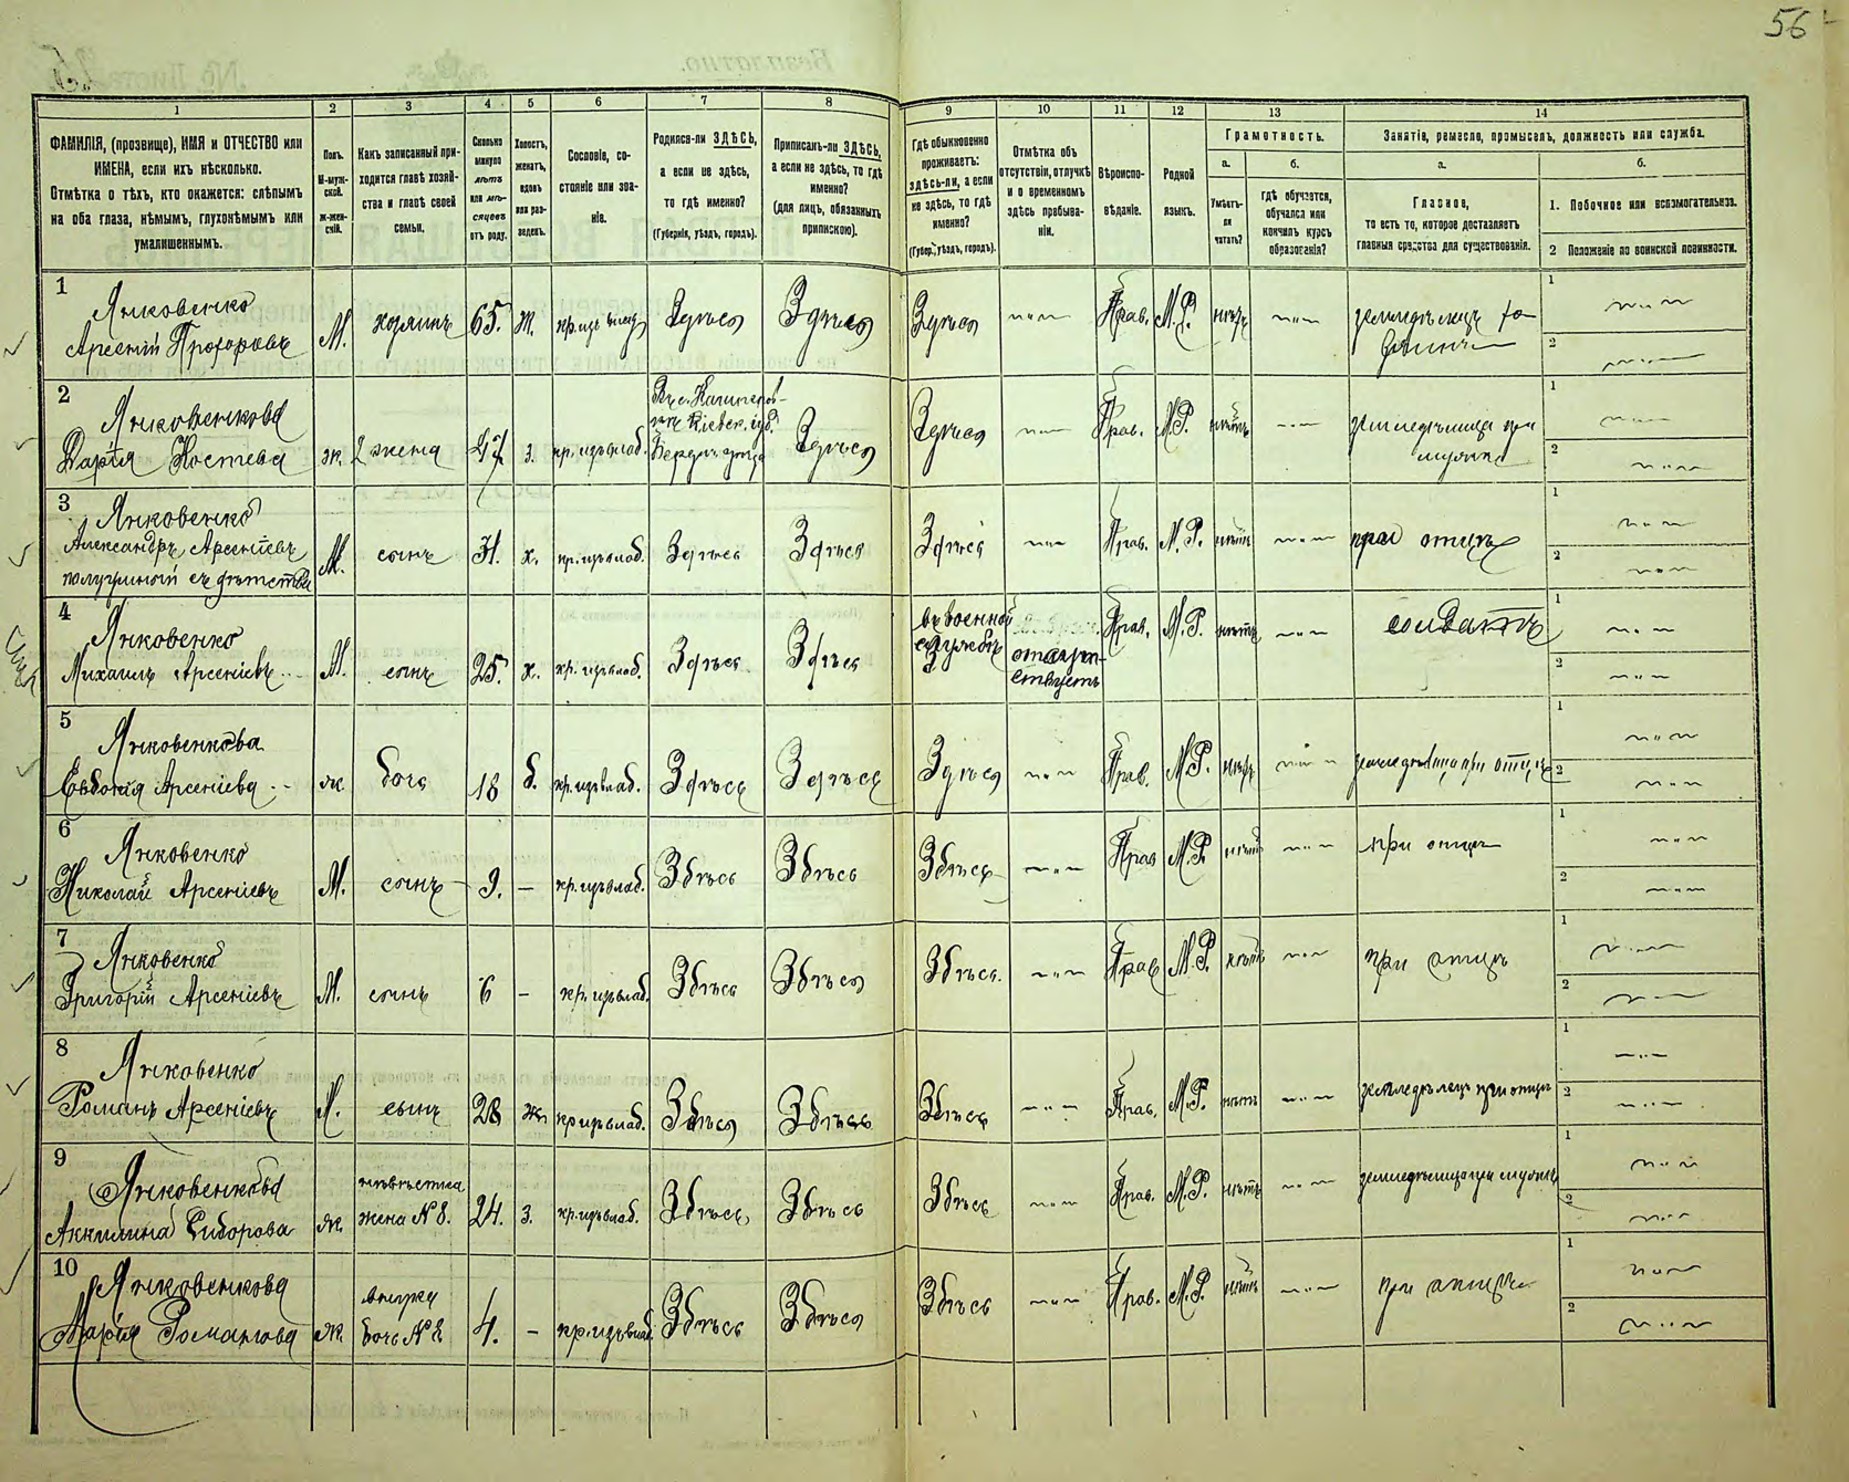 56
1 2 3 4 5 6 7 8 9 10 11 12 13 14
ФАМИЛІЯ, (прозвище), ИМЯ и ОТЧЕСТВО или
ИМЕНА, если ихъ нѣсколько.
Отмѣтка о тѣхъ, кто окажется: слѣпымъ
на оба глаза, нѣмымъ, глухонѣмымъ или
умалишеннымъ.
Полъ.
М-муж-
ской.
ж-жен-
скій.
Какъ записанный при-
ходится главѣ хозяй-
ства и главѣ своей
семьи.
Сколько
минуло
лѣтъ
или мѣ-
сяцевъ
отъ роду.
Холостъ,
женатъ,
вдовъ
или раз-
веденъ.
Сословіе, со-
стояніе или зва-
ніе.
Родился-ли ЗДѢСЬ,
а если не здѣсь,
то гдѣ именно?
(Губернія, уѣздъ, городъ).
Приписанъ-ли ЗДѢСЬ,
а если не здѣсь, то гдѣ
именно?
(для лицъ, обязанныхъ
припискою).
Гдѣ обыкновенно
проживаетъ:
здѣсь-ли, а если
не здѣсь, то гдѣ
именно?
(Губер., уѣздъ, городъ).
Отмѣтка объ
отсутствіи, отлучкѣ
и о временномъ
здѣсь пребыва-
ніи.
Вѣроиспо-
вѣданіе.
Родной
языкъ.
Грамотность.
а. б.
Умѣетъ-
ли
читать?
гдѣ обучается,
обучался или
кончилъ курсъ
образованія?
Занятіе, ремесло, промыселъ, должность или служба.
а. б.
Главное,
то есть то, которое доставляетъ
главныя средства для существованія.
1. Побочное или вспомогательное.
2 Положеніе по воинской повинности.
1
Янковенко
Арсеній Прохоровъ М. хозяинъ 65. ж. Здѣся Здѣся Здѣся Прав. М.Р. нѣтъ
2
Янковенкова
Дарія Костева ж. жена 47 з. кр. изъ влад. Здѣся Здѣся Прав. М.Р. нѣтъ
3
Янковенко
Александръ Арсеніевъ М. сынъ х. кр. изъ влад. Здѣся Здѣся Здѣся Прав. М.Р. нѣтъ при отцѣ
съ дѣтства
4
Янковенко
Михаилъ Арсеніевъ М. сынъ 25. х. кр. изъ влад. Здѣся Здѣся въ военной
службѣ отсут-
ствуетъ Прав. М.Р. нѣтъ солдатъ
5
Янковенкова
Евдокія Арсеніева ж. дочь 18 д. кр. изъ влад. Здѣсь Здѣсь Здѣся Прав. М.Р. нѣтъ
6
Янковенко
Николай Арсеніевъ М. сынъ 9. – кр. изъ влад. Здѣсь Здѣсь Здѣсь Прав М.Р. нѣтъ при отцѣ
7
Янковенко
Григорій Арсеніевъ М. сынъ 6 – кр. изъ влад. Здѣся Здѣся Здѣся. Прав М.Р. нѣтъ при отцѣ
8
Янковенко
Романъ Арсеніевъ М. сынъ 28 ж. кр изъ влад. Здѣся Здѣсь Здѣсь Прав. М.Р. нѣтъ земледѣлецъ при отцѣ
9
Янковенкова
Акилина Сидорова ж. невѣстка
жена № 8. 24. з. кр. изъ влад. Здѣсь Здѣсь Здѣсь Прав. М.Р. нѣтъ
10
Янковенкова
Марія Романова ж. внучка
дочь № 8 4. – кр. изъ влад. Здѣсь Здѣся Здѣсь Прав. М.Р. нѣтъ при отцѣ